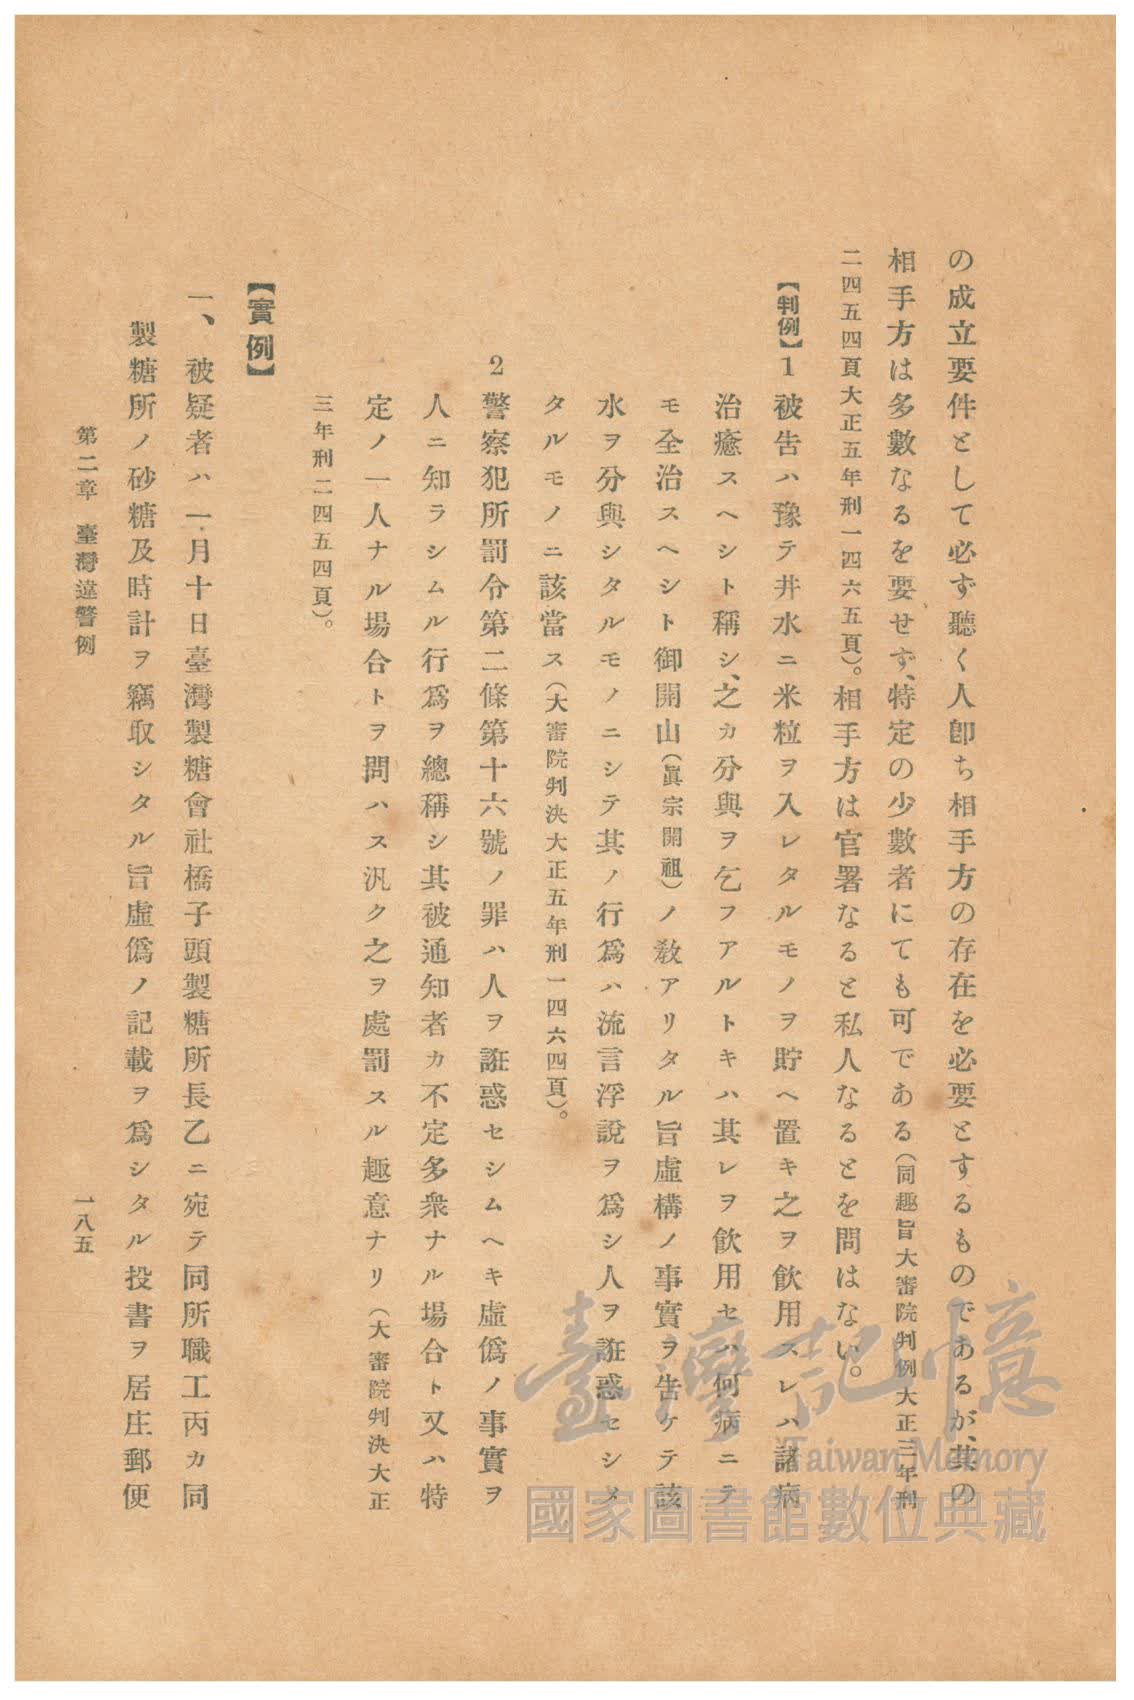 の成立要件として必ず聽く人卽ち相手方の存在を必要とするものであるが、其の
相手方は多數なるを要せず、特定の少數者にても可である(同趣旨大審院判例大正三年刑
二四五四頁大正五年刑一四六五頁)。相手方は官署なると私人なるとを問はない。
【判例】1被告ハ豫テ井水ニ米粒ヲ入レタルモノヲ貯ヘ置キ之ヲ飮用スレハ諸病
治癒スヘシト稱シ、之カ分與ヲ乞フアルトキハ其レヲ飮用セハ何病ニテ
モ全治スヘシト御開山(眞宗開祖)ノ敎アリタル旨虛構ノ事實ヲ吿ケテ該
水ヲ分與シタルモノニシテ其ノ行爲ハ流言浮說ヲ爲シ人ヲ誑惑セシメ
タルモノニ該當ス(大審院判決大正五年刑一四六四頁)。
2警察犯所罰令第二條第十六號ノ罪ハ人ヲ誑惑セシムヘキ虛僞ノ事實ヲ
人ニ知ラシムル行爲ヲ總稱シ其被通知者カ不定多衆ナル場合ト又ハ特
定ノ一人ナル場合トヲ問ハス汎ク之ヲ處罰スル趣意ナリ(大審院判決大正
三年刑二四五四頁)。
【實例】
一、被疑者ハ一月十日臺灣製糖會社橋子頭製糖所長乙ニ宛テ同所職工丙カ同
製糖所ノ砂糖及時計ヲ竊取シタル旨虛僞ノ記載ヲ爲シタル投書ヲ居庄郵便
第二章 臺灣違警例
一八五
臺灣記憶
Taiwan Memory
國家圖書館數位典藏